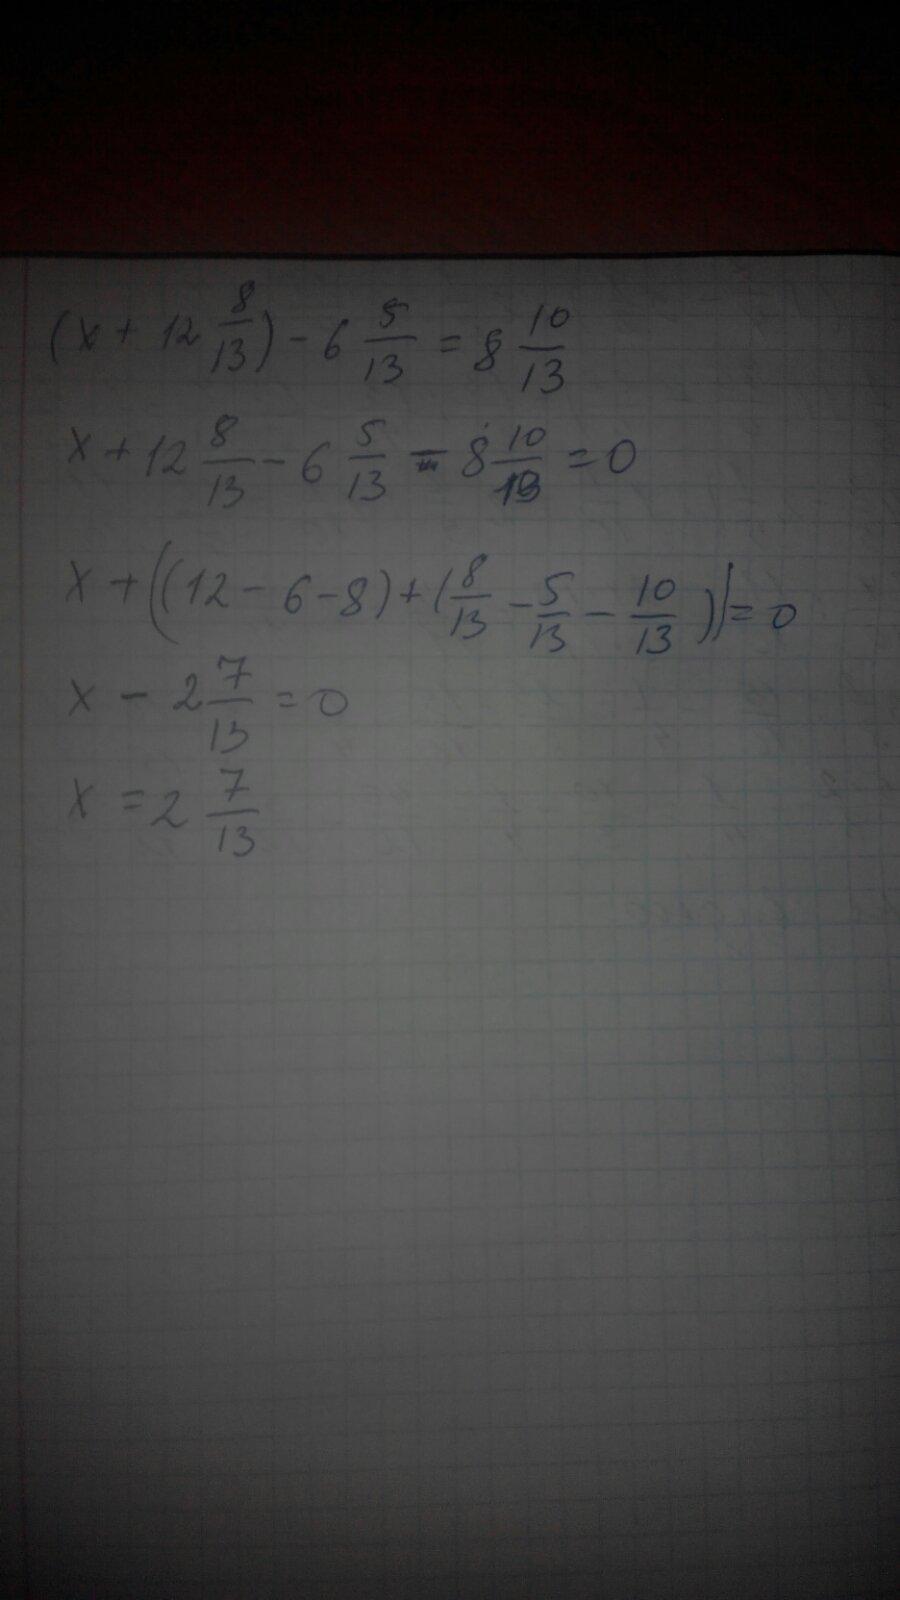 (x + 12 8/13) - 6 5/13 = 8 10/13
x + 12 8/13 - 6 5/13 - 8 10/13 = 0
x + ((12 - 6 - 8) + (8/13 - 5/13 - 10/13)) = 0
x - 2 7/13 = 0
x = 2 7/13